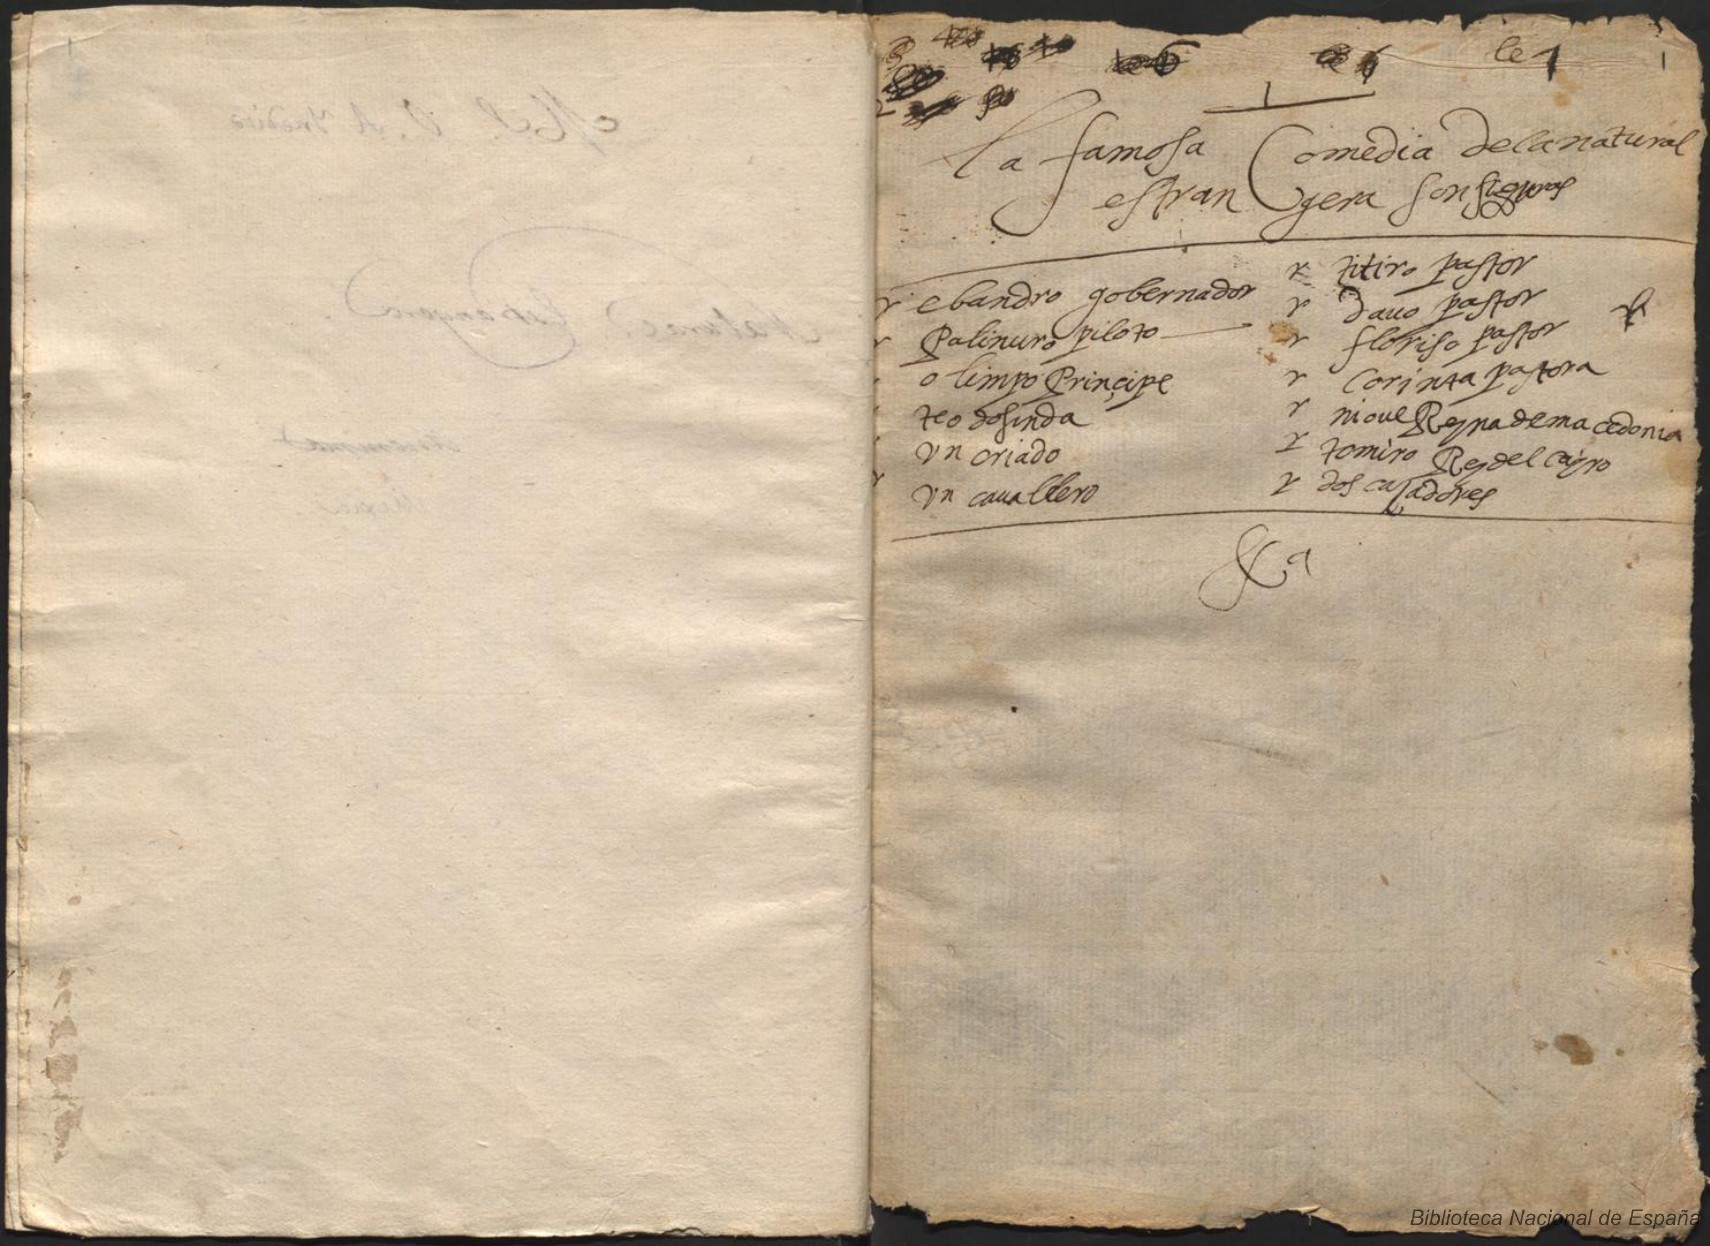 le 1
1
la famosa Comedia de la natural
estrangera son figuras
ebandro gobernador
Palinuro piloto
olimpo Principe
teodosinda
vn criado
vn cauallero
titiro pastor
dauo pastor
floriso pastor
Corinta pastora
nioue Reyna de macedonia
tomiro Rey del cayro
dos caçadores
&a
Biblioteca Nacional de España